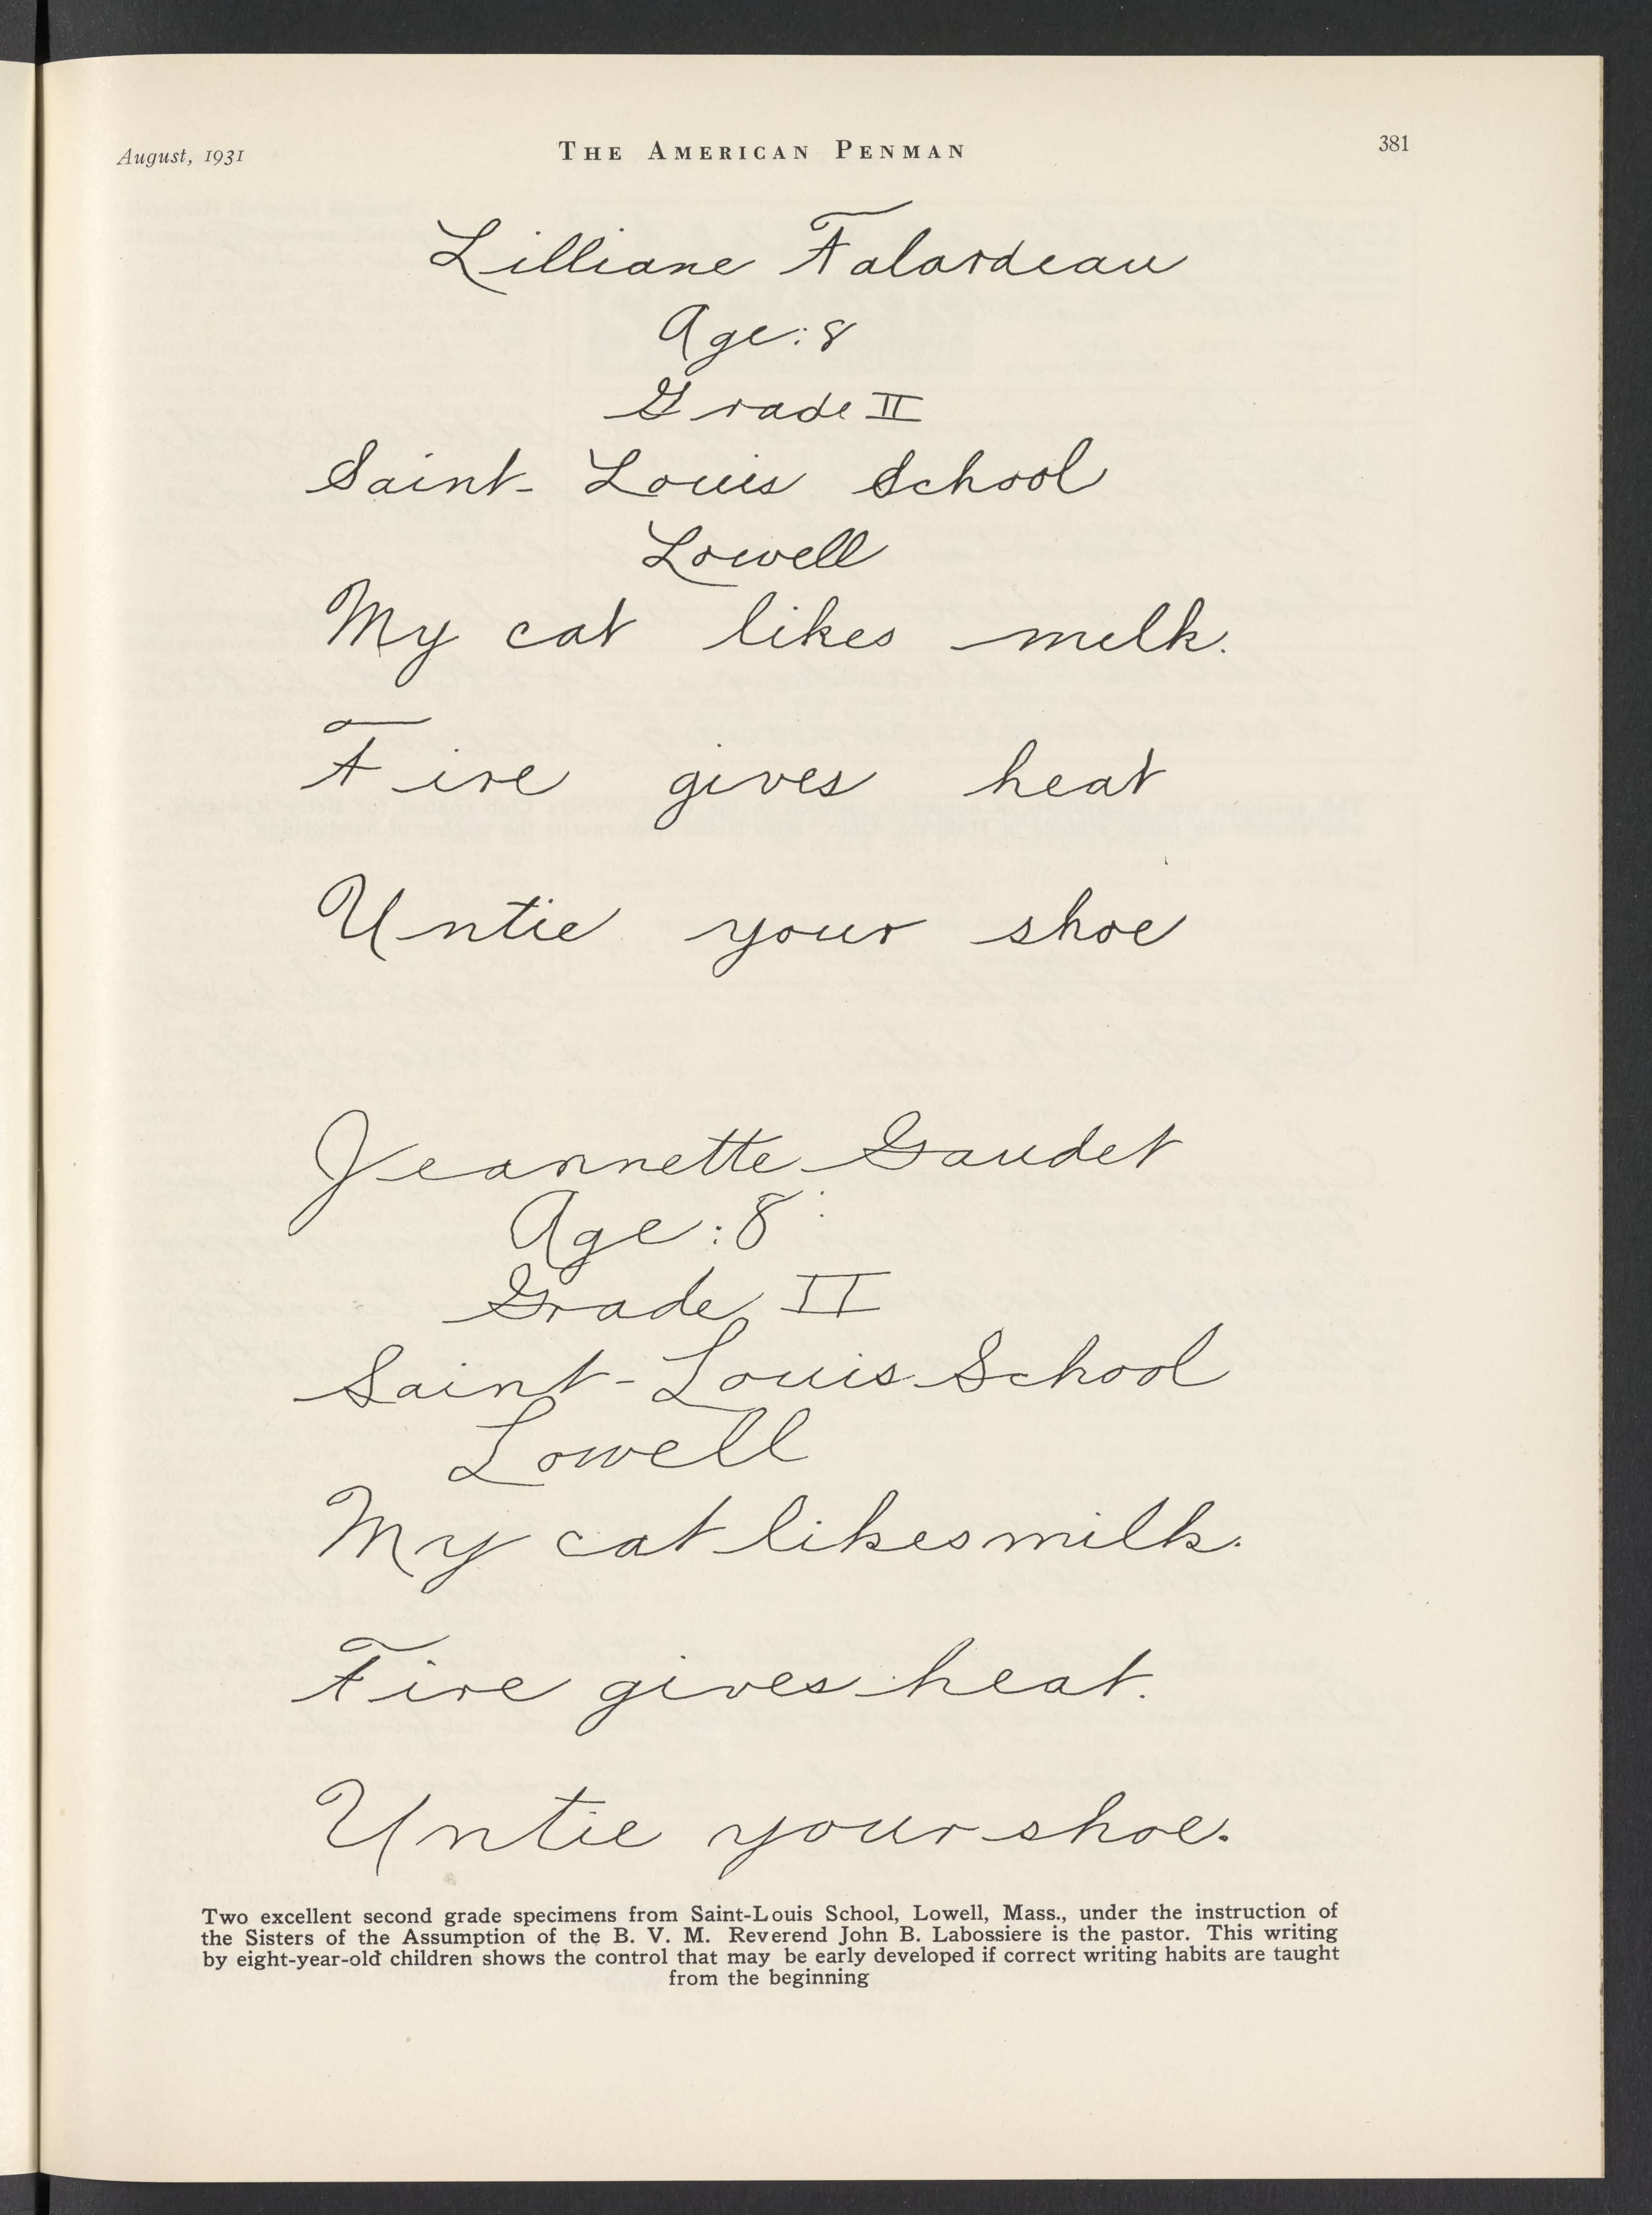 August, 1931 THE AMERICAN PENMAN 381
Lilliane Falardeau
Age: 8
Grade II
Saint- Louis School
Lowell
My cat likes milk.
Fire gives heat
Untie your shoe
Jeannette Gaudet
Age: 8
Grade II
Saint-Louis School
Lowell
My cat likes milk.
Fire gives heat.
Untie your shoe.
Two excellent second grade specimens from Saint-Louis School, Lowell, Mass., under the instruction of
the Sisters of the Assumption of the B. V. M. Reverend John B. Labossiere is the pastor. This writing
by eight-year-old children shows the control that may be early developed if correct writing habits are taught
from the beginning